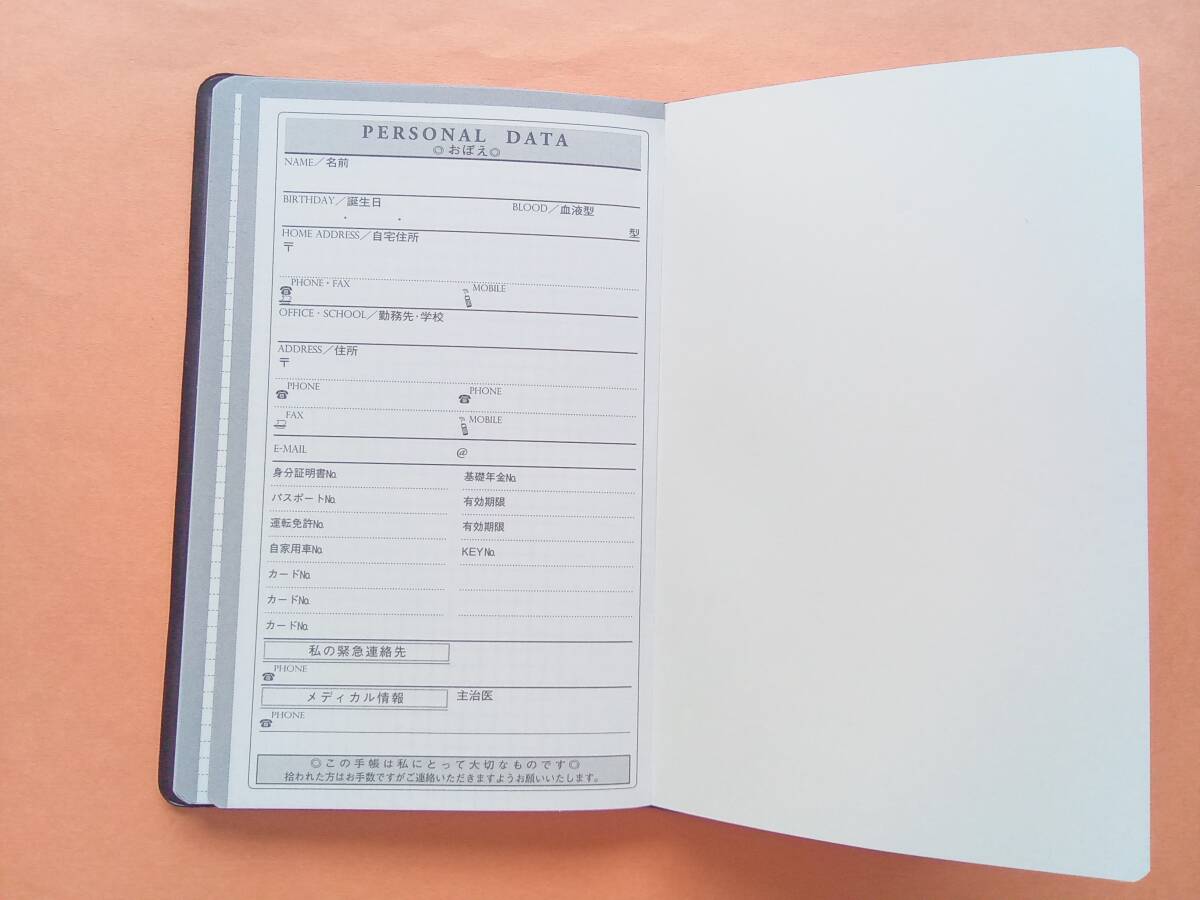 PERSONAL DATA
◎おぼえ◎
NAME／名前
BIRTHDAY／誕生日 BLOOD／血液型
・ ・ 型
HOME ADDRESS／自宅住所
〒
PHONE・FAX MOBILE
OFFICE・SCHOOL／勤務先・学校
ADDRESS／住所
〒
PHONE PHONE
FAX MOBILE
E-MAIL @
身分証明書№ 基礎年金№
パスポート№ 有効期限
運転免許№ 有効期限
自家用車№ KEY№
カード№
カード№
カード№
私の緊急連絡先
PHONE
メディカル情報 主治医
PHONE
◎この手帳は私にとって大切なものです◎
拾われた方はお手数ですがご連絡いただきますようお願いいたします。